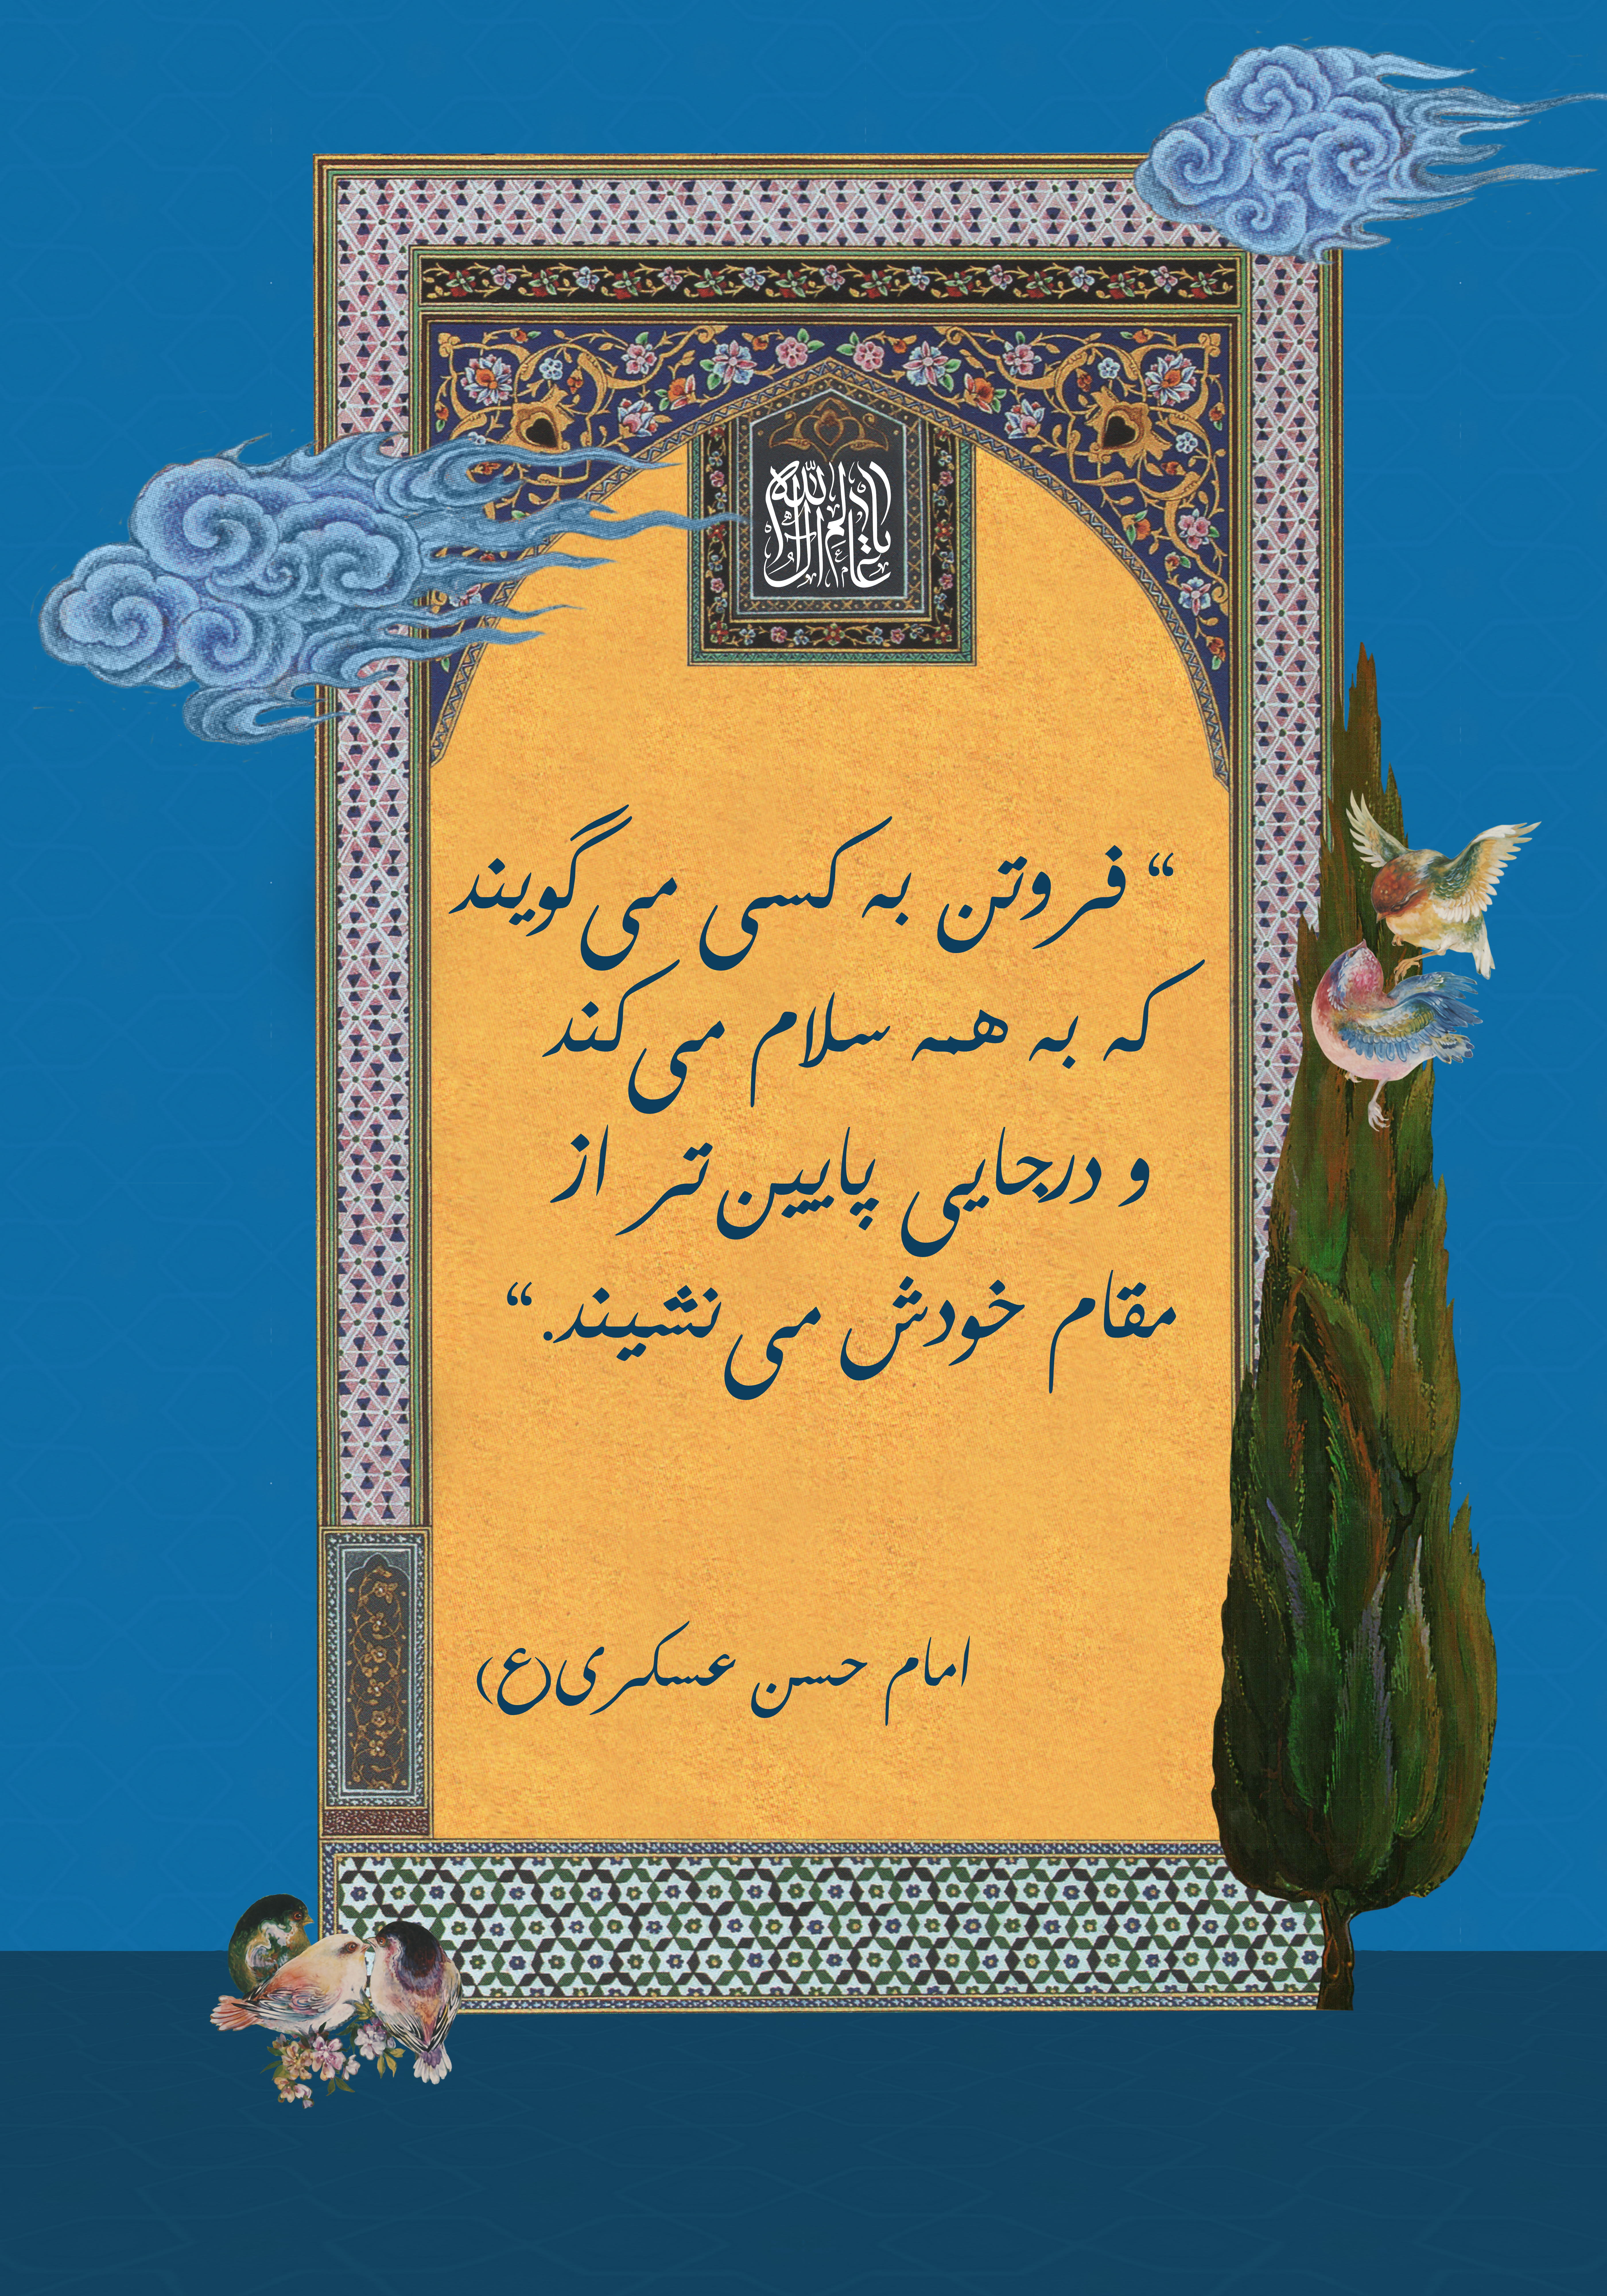 “ فروتن به کسی می‌گویند
که به همه سلام می‌کند
و درجایی پایین‌تر از
مقام خودش می‌نشیند. “
امام حسن عسکری(ع)